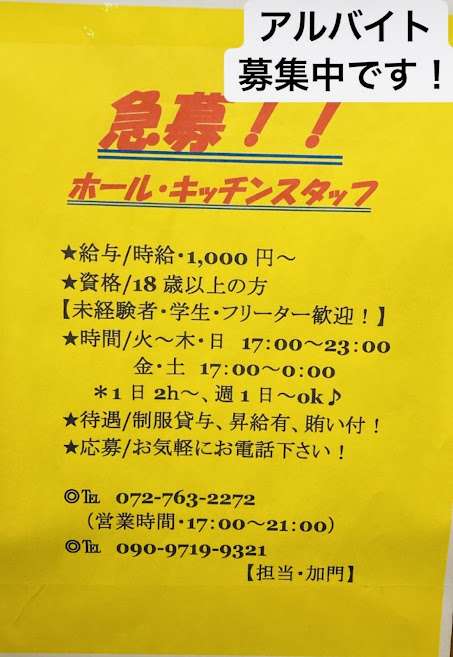 アルバイト
募集中です！
急募！！
ホール・キッチンスタッフ
★給与/時給・1,000 円～
★資格/18 歳以上の方
【未経験者・学生・フリーター歓迎！】
★時間/火～木・日 17:00～23:00
金・土 17:00～0:00
＊1 日 2h～、週 1 日～ok♪
★待遇/制服貸与、昇給有、賄い付！
★応募/お気軽にお電話下さい！
◎℡ 072-763-2272
（営業時間・17:00～21:00）
◎℡ 090-9719-9321
【担当・加門】